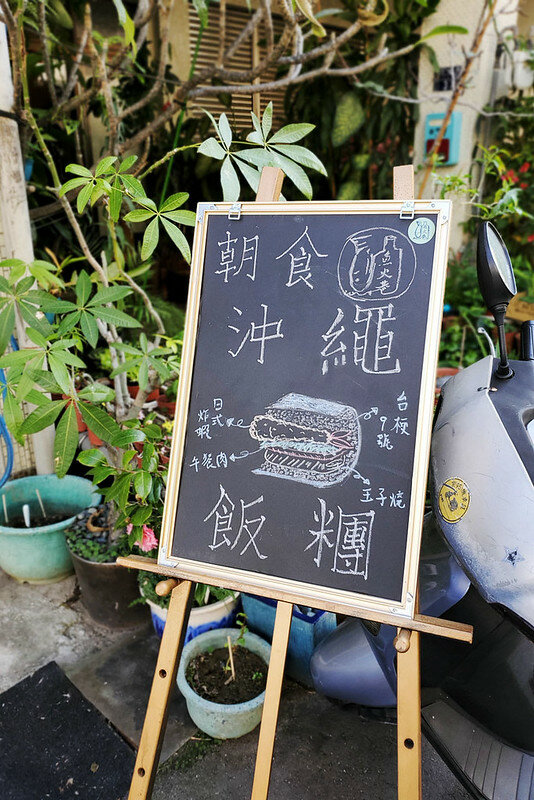 朝食
沖繩
日式
炸蝦
午餐肉
台梗
9號
玉子燒
飯糰